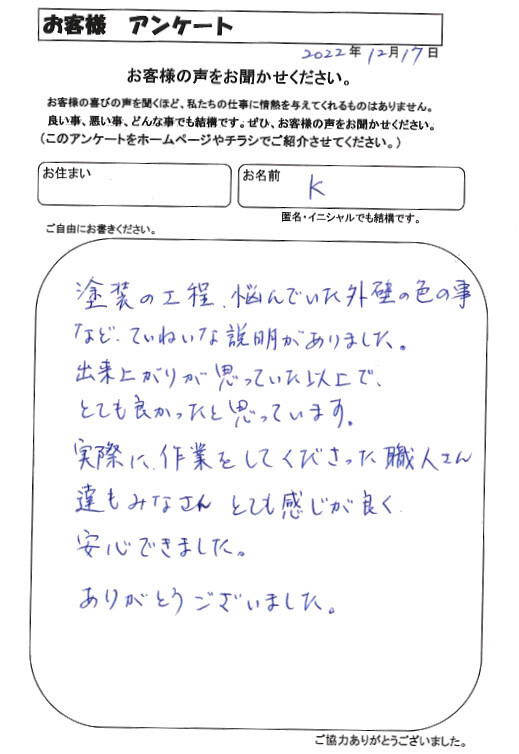 お客様　アンケート
2022年12月17日
お客様の声をお聞かせください。
お客様の喜びの声を聞くほど、私たちの仕事に情熱を与えてくれるものはありません。
良い事、悪い事、どんな事でも結構です。ぜひ、お客様の声をお聞かせください。
(このアンケートをホームページやチラシでご紹介させてください。)
お住まい
お名前
K
匿名・イニシャルでも結構です。
ご自由にお書きください。
塗装の工程、悩んでいた外壁の色の事
など、ていねいな説明がありました。
出来上がりが思っていた以上で、
とても良かったと思っています。
実際に、作業をしてくださった職人さん
達もみなさん とても感じが良く、
安心できました。
ありがとうございました。
ご協力ありがとうございました。